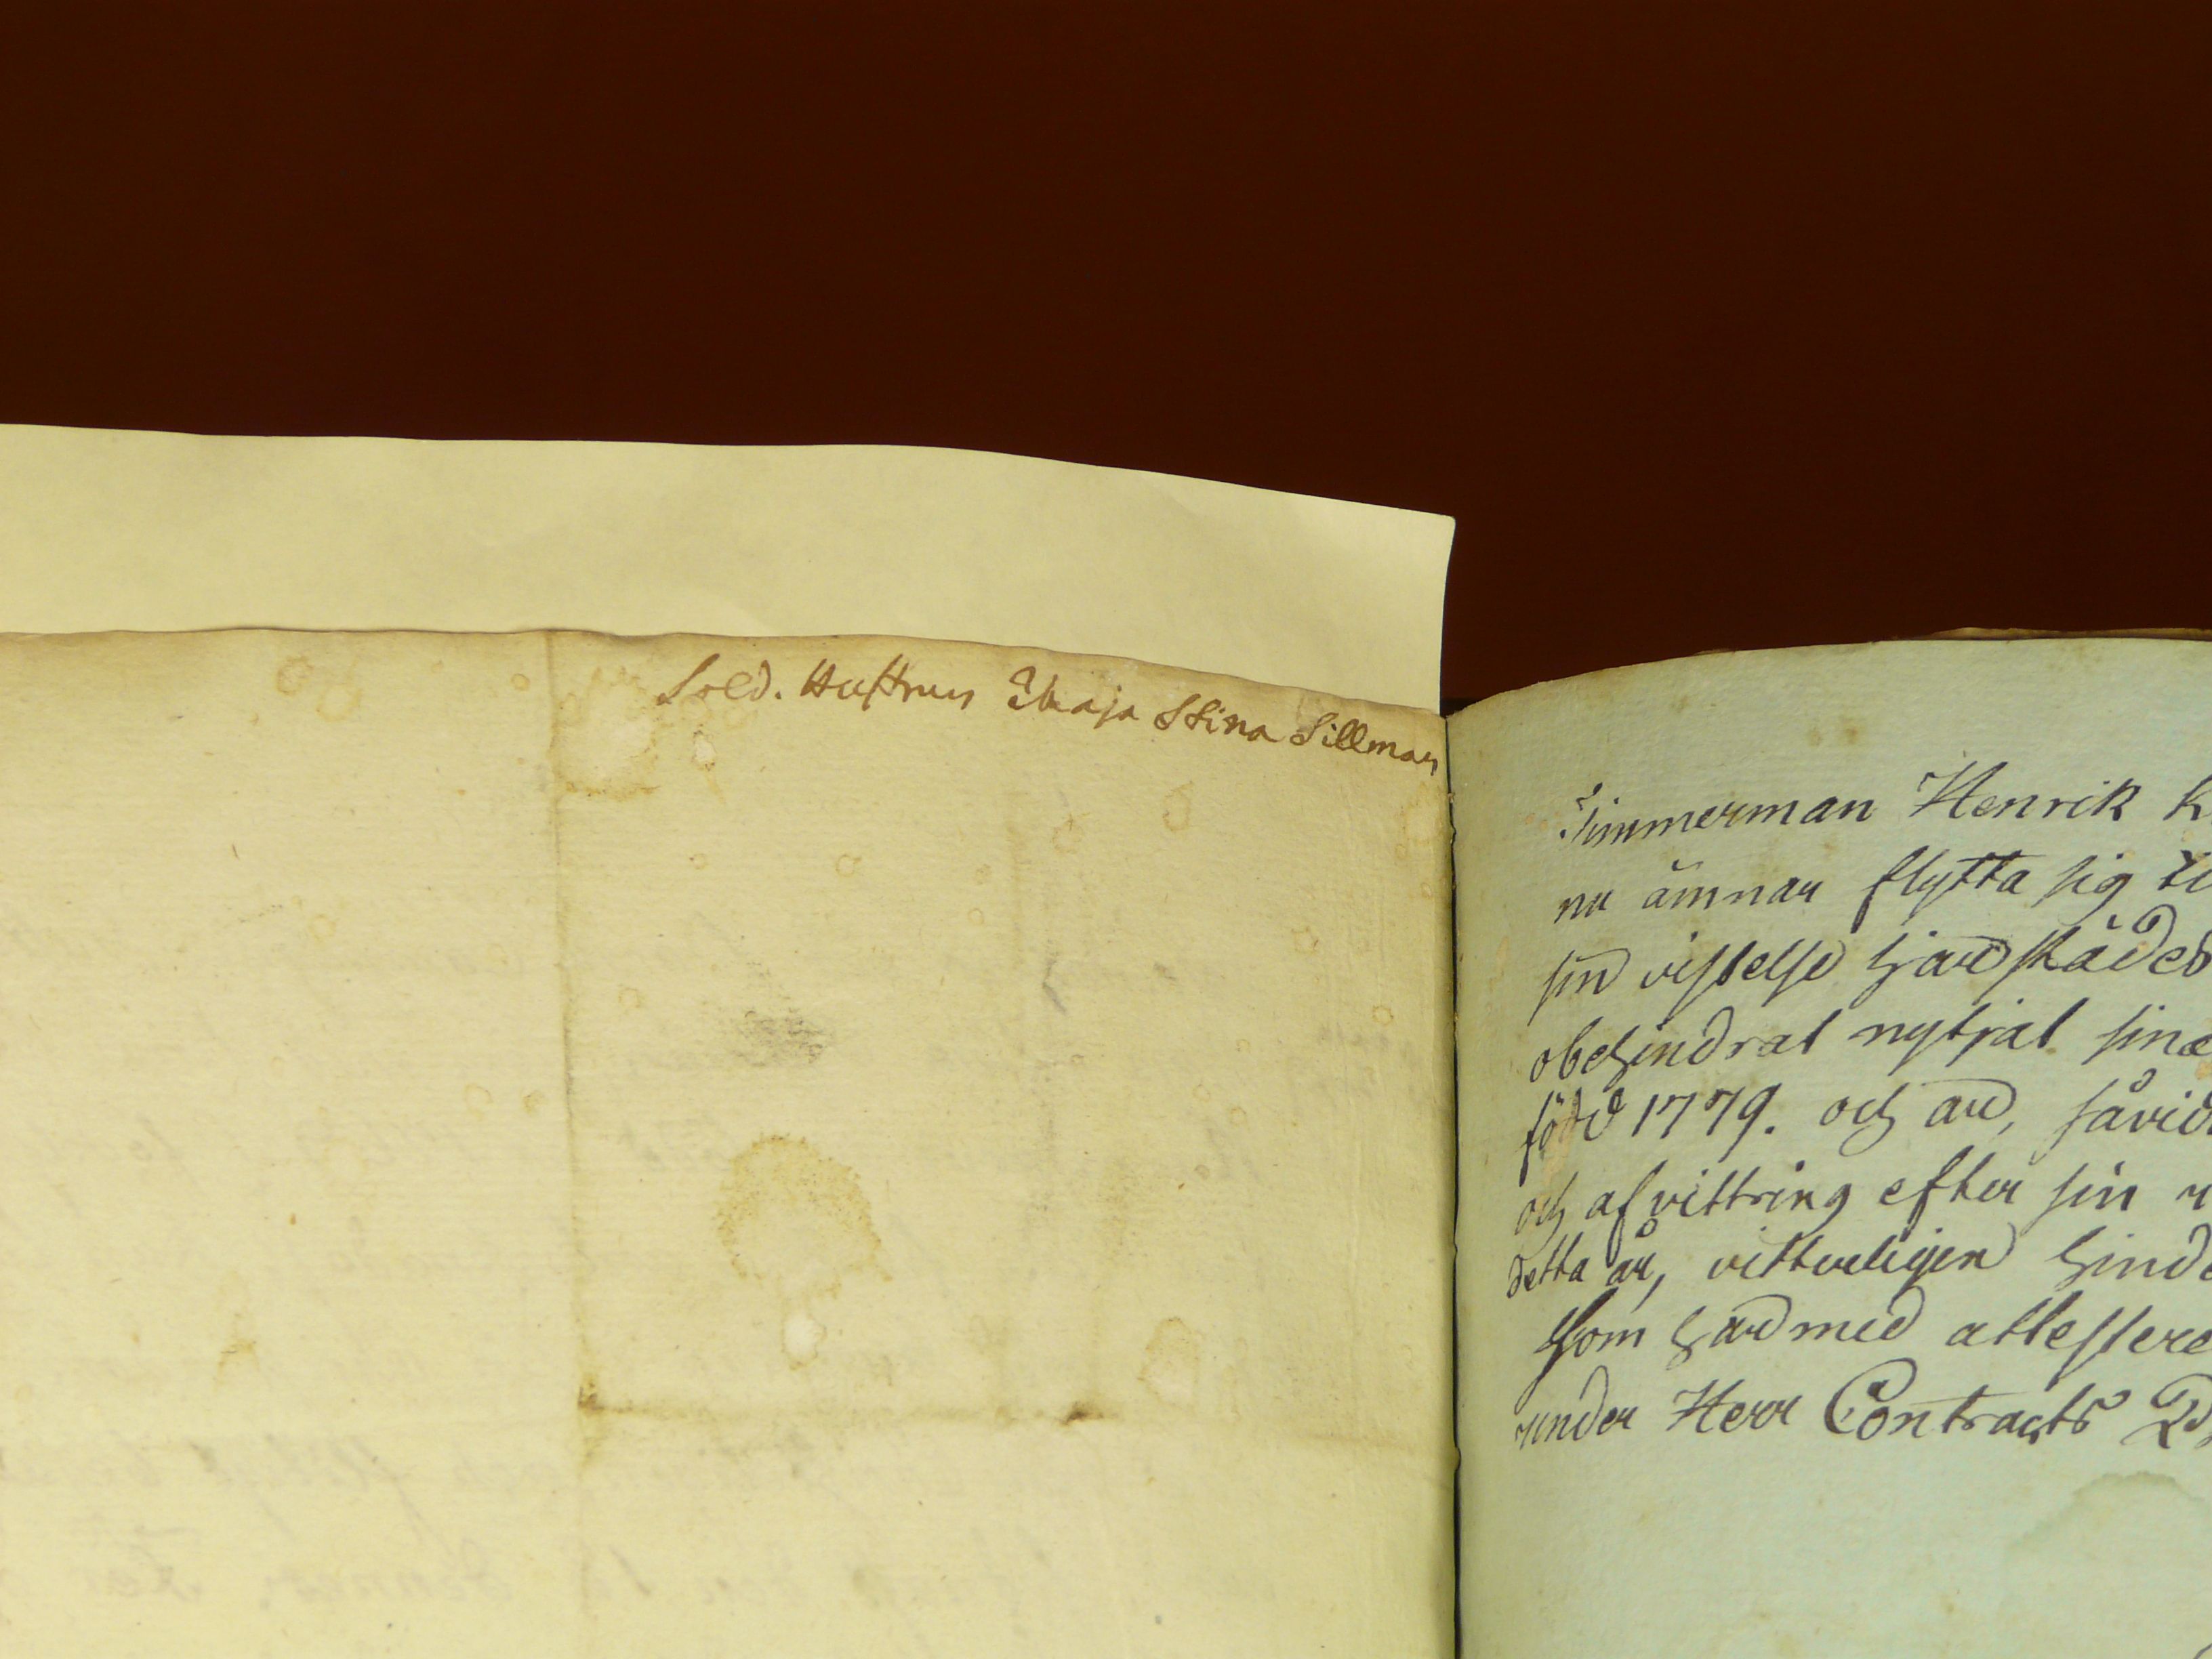 Sold. Hustrun Maja Stina Sillman
Timmerman Henrik K
nu ämnar flytta sig ti
sin vistelse härstädes
obehindrat nytjat sina
född 1779. och är, såvid
och afvittring efter sin
detta år, vitterligen hinde
Som härmed attestere
under Herr Contracts P